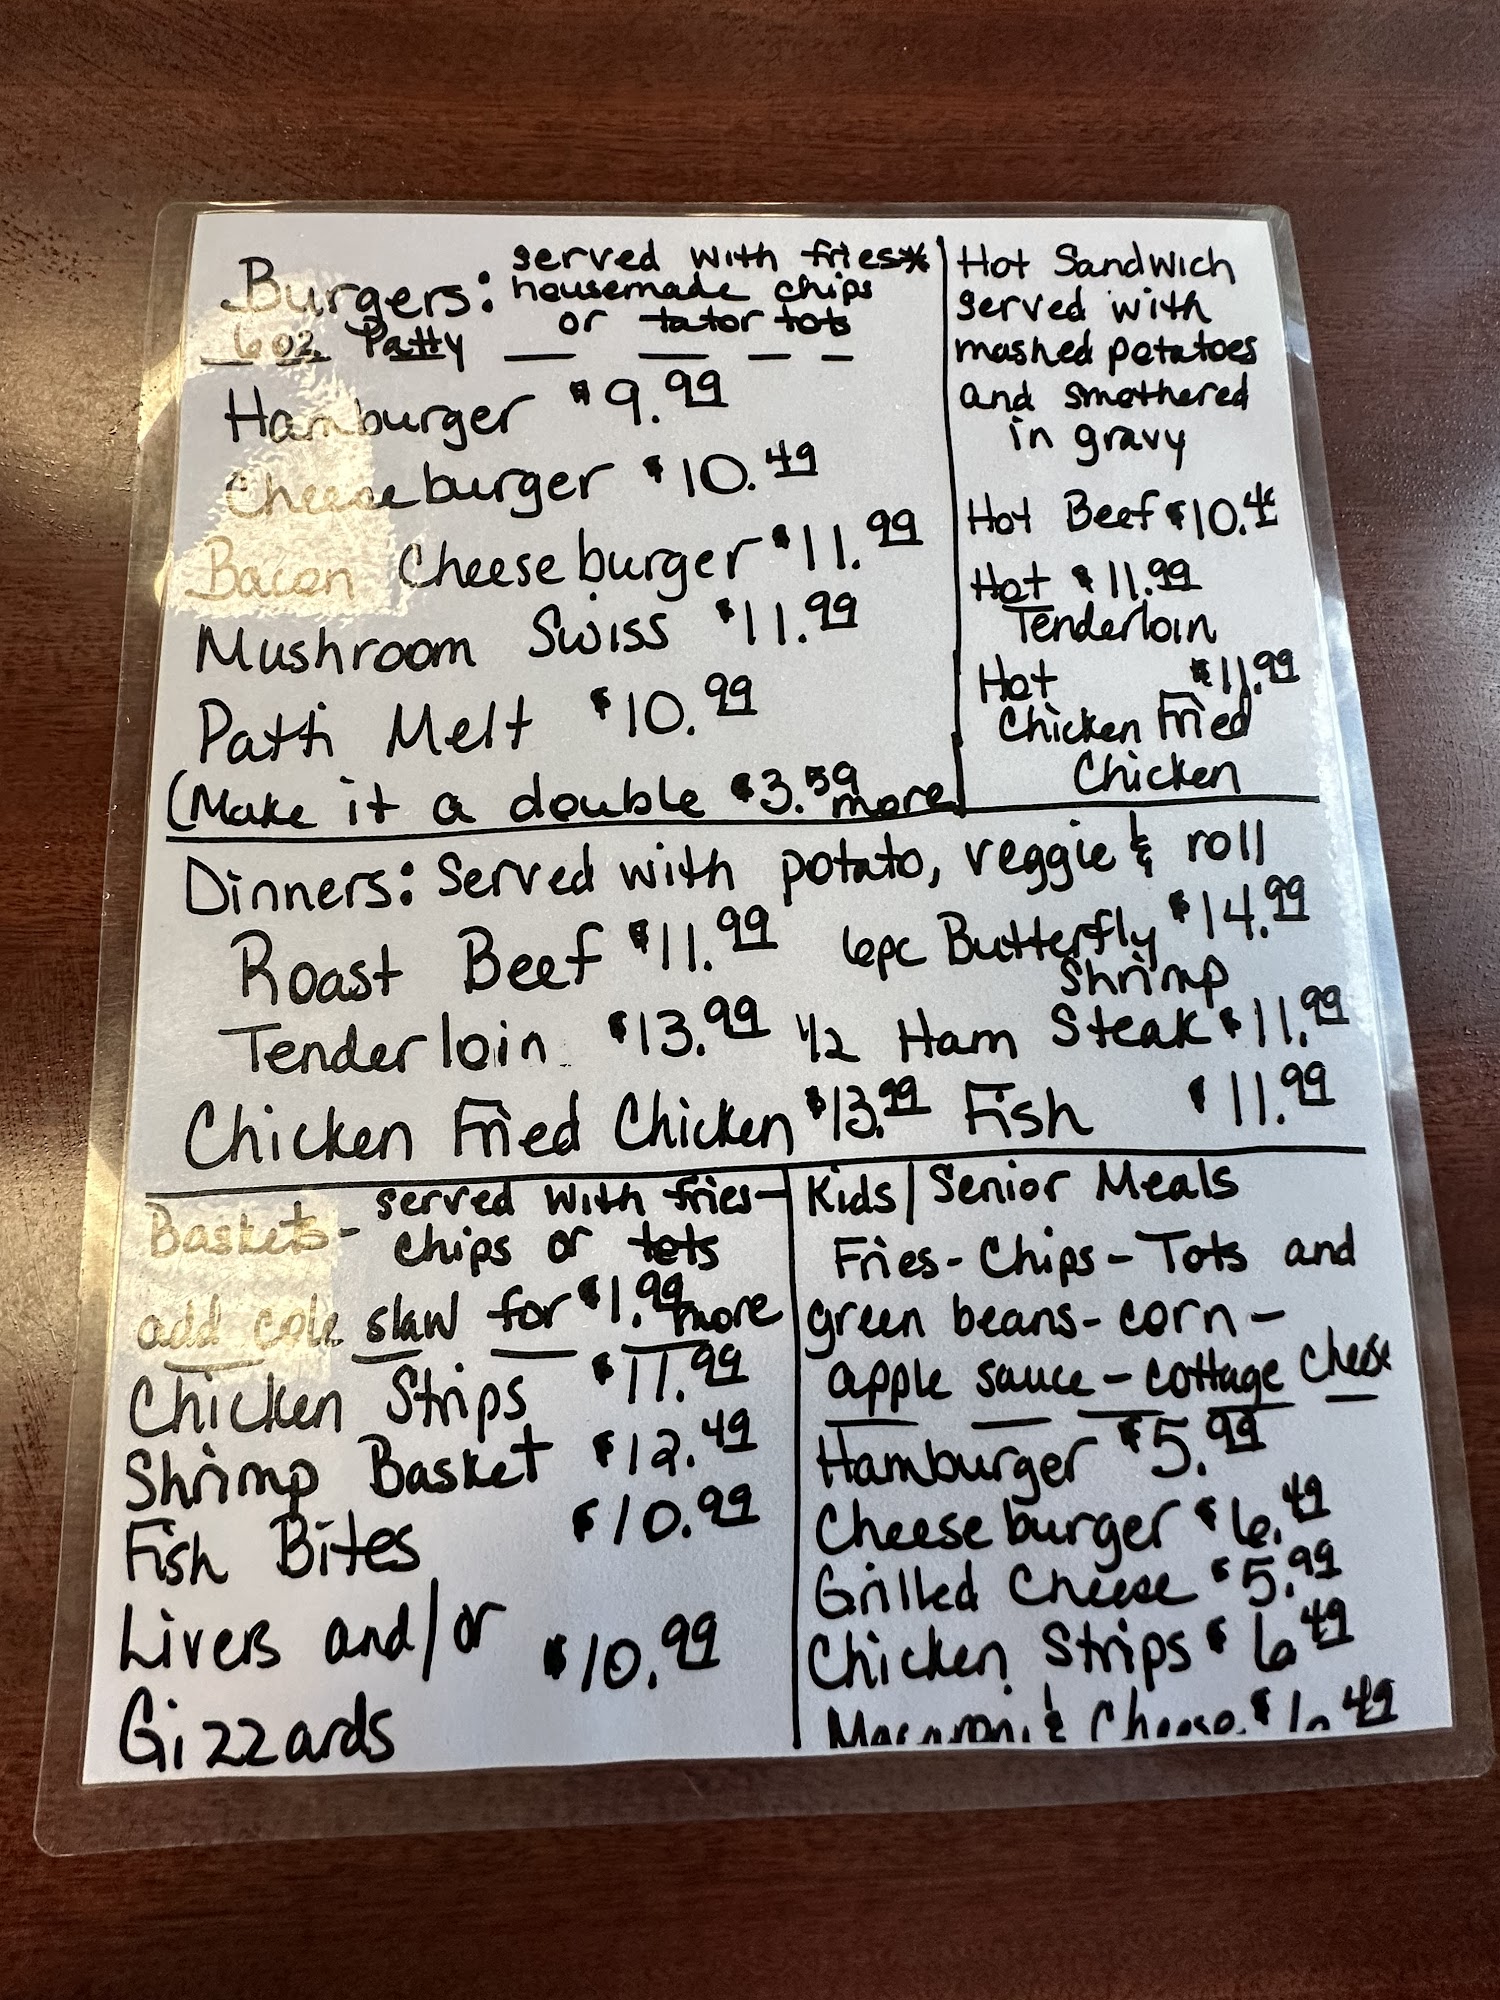 Burgers: served with fries
housemade chips
6 oz. Patty or tator tots
Hamburger $9.99
Cheeseburger $10.49
Bacon Cheeseburger $11.99
Mushroom Swiss $11.99
Patti Melt $10.99
(Make it a double $3.59 more
Hot Sandwich
served with
mashed potatoes
and smothered
in gravy
Hot Beef
Hot $11.99
Tenderloin
Hot $11.99
Chicken Fried
Chicken
Dinners: Served with potato, veggie & roll
Roast Beef $11.99
Tenderloin $13.99
Chicken Fried Chicken $13.99
6pc Butterfly $14.99
Shrimp
1/2 Ham Steak $11.99
Fish $11.99
Baskets- served with fries-
chips or tots
add cole slaw for $1.99 more
Chicken Strips $11.99
Shrimp Basket $12.49
Fish Bites $10.99
Livers and/or $10.99
Gizzards
Kids/Senior Meals
Fries-Chips-Tots and
green beans-corn-
apple sauce-cottage cheese
Hamburger $5.99
Cheeseburger $6.49
Grilled Cheese $5.99
Chicken Strips $6.49
Macaroni & Cheese $6.49